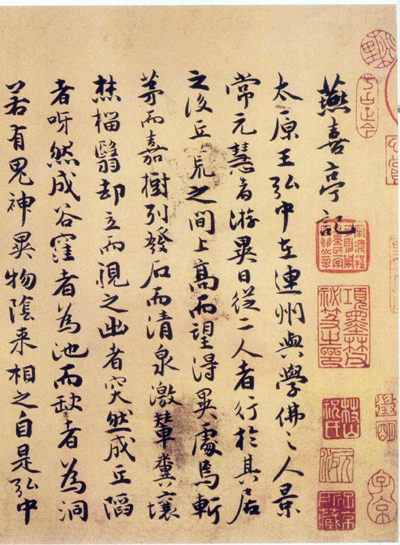 燕喜亭記
太原王弘中在連州與學佛之人景
常元慧者游異日從二人者行於其居
之後丘荒之間上高而望得異處焉斬
茅而嘉樹列發石而清泉激輦糞壤
焚榴翳却立而視之出者突然成丘陷
者呀然成谷窪者為池而缺者為洞
若有鬼神異物陰来相之自是弘中
項墨林祕笈之印
子京